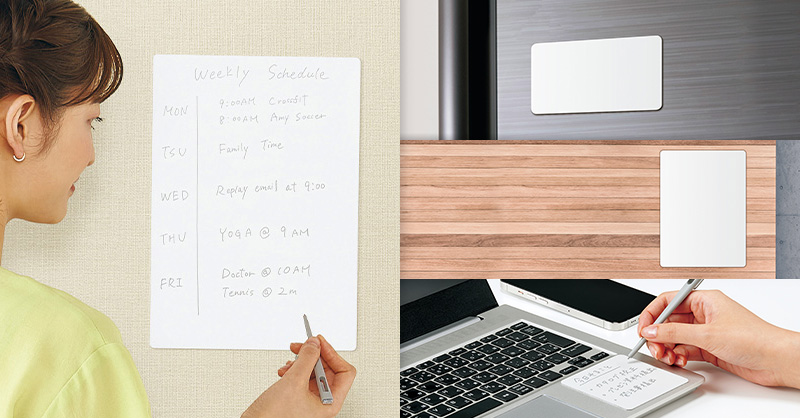 Weekly Schedule
MON
9:00AM Crossfit
8:00AM Amy Soccer
TSU
Family Time
WED
Replay email at 9:00
THU
YOGA @ 9 AM
FRI
Doctor @ 10 AM
Tennis @ 2m